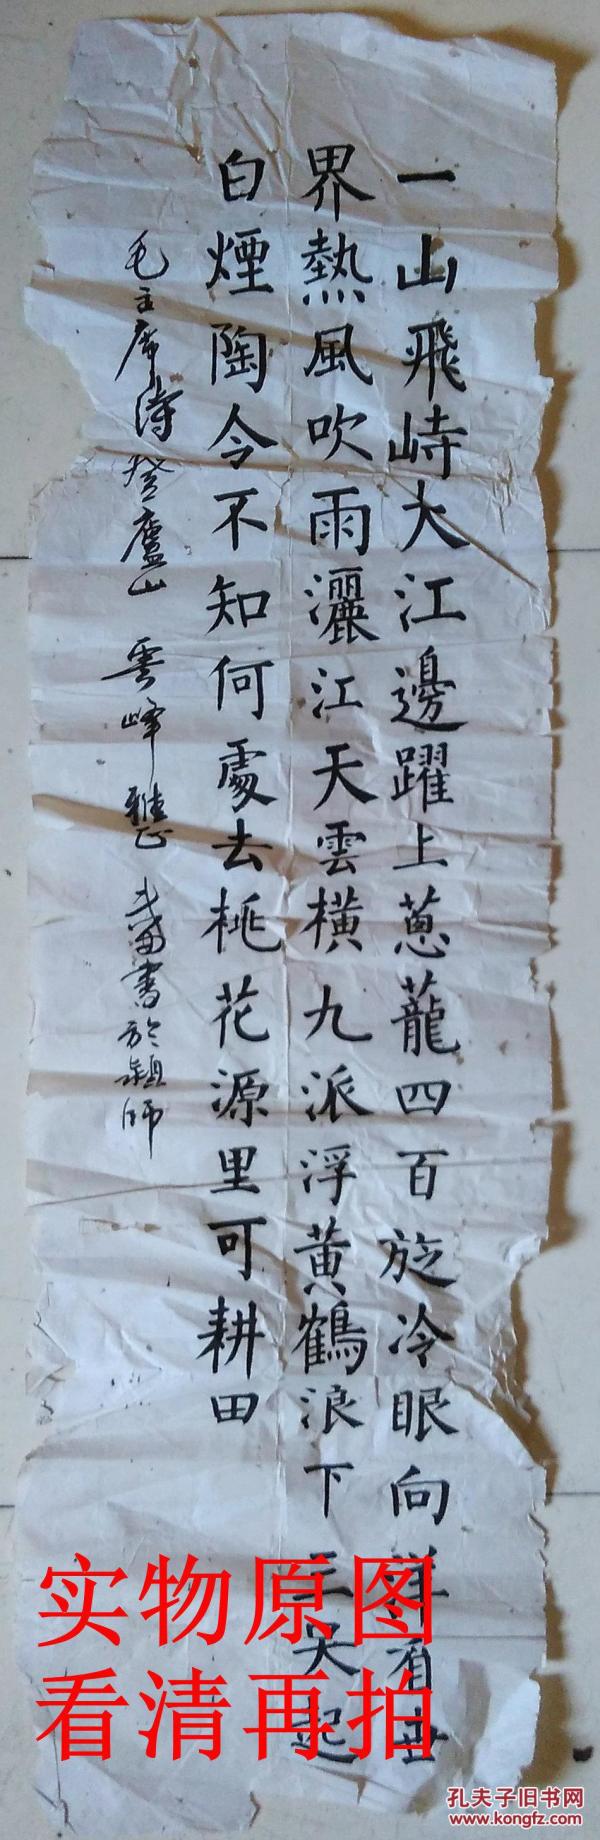 一山飛峙大江邊躍上蔥蘢四百旋冷眼向洋看世
界熱風吹雨灑江天雲橫九派浮黃鶴浪下三吴起
白煙陶令不知何處去桃花源里可耕田
毛主席诗登廬山 雲峰雅正 書於潁師
实物原图
看清再拍
孔夫子旧书网
www.kongfz.com